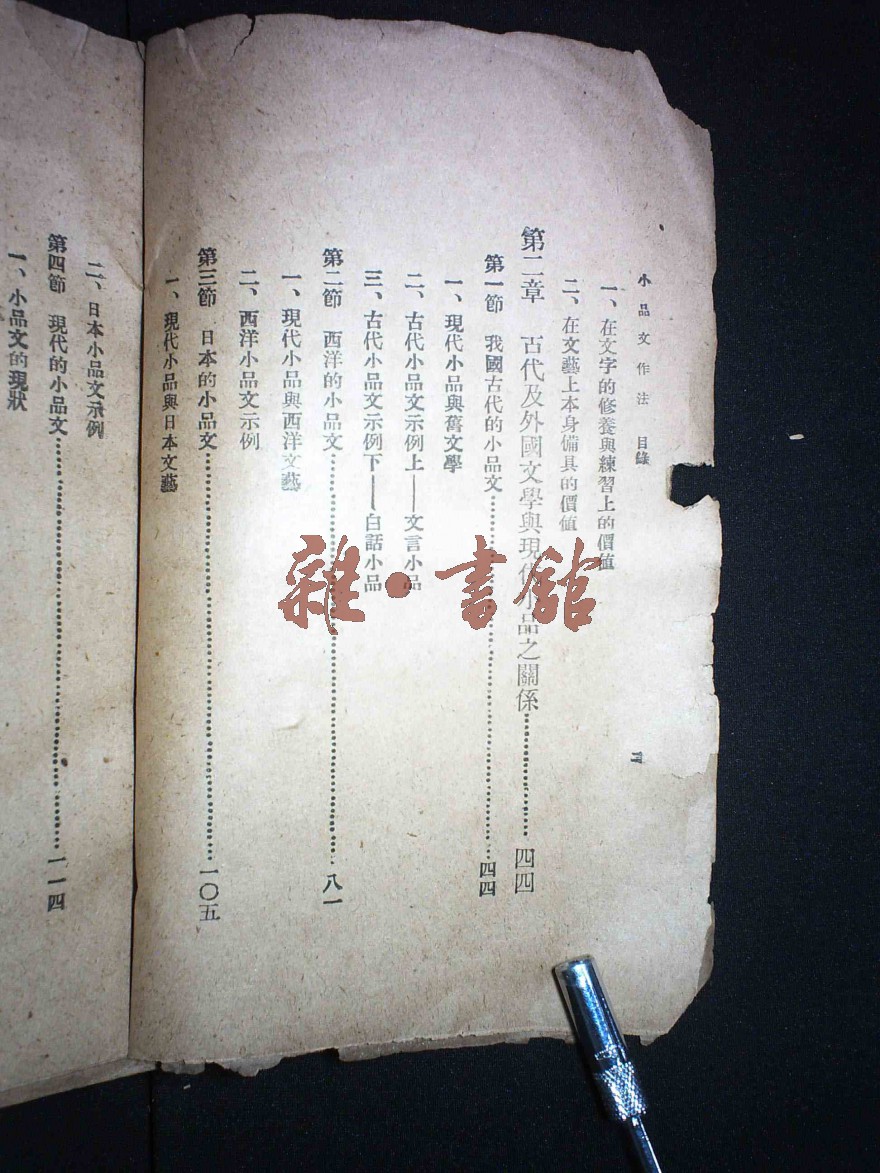 小品文作法 目錄
一、在文字的修養與練習上的價值
二、在文藝上本身備具的價值
第二章 古代及外國文學與現代小品之關係……四四
第一節 我國古代的小品文……四四
一、現代小品與舊文學
二、古代小品文示例上——文言小品
三、古代小品文示例下——白話小品
第二節 西洋的小品文……八一
一、現代小品與西洋文藝
二、西洋小品文示例
第三節 日本的小品文……一〇五
一、現代小品與日本文藝
二、日本小品文示例
第四節 現代的小品文……一一四
一、小品文的現狀
雜·書館